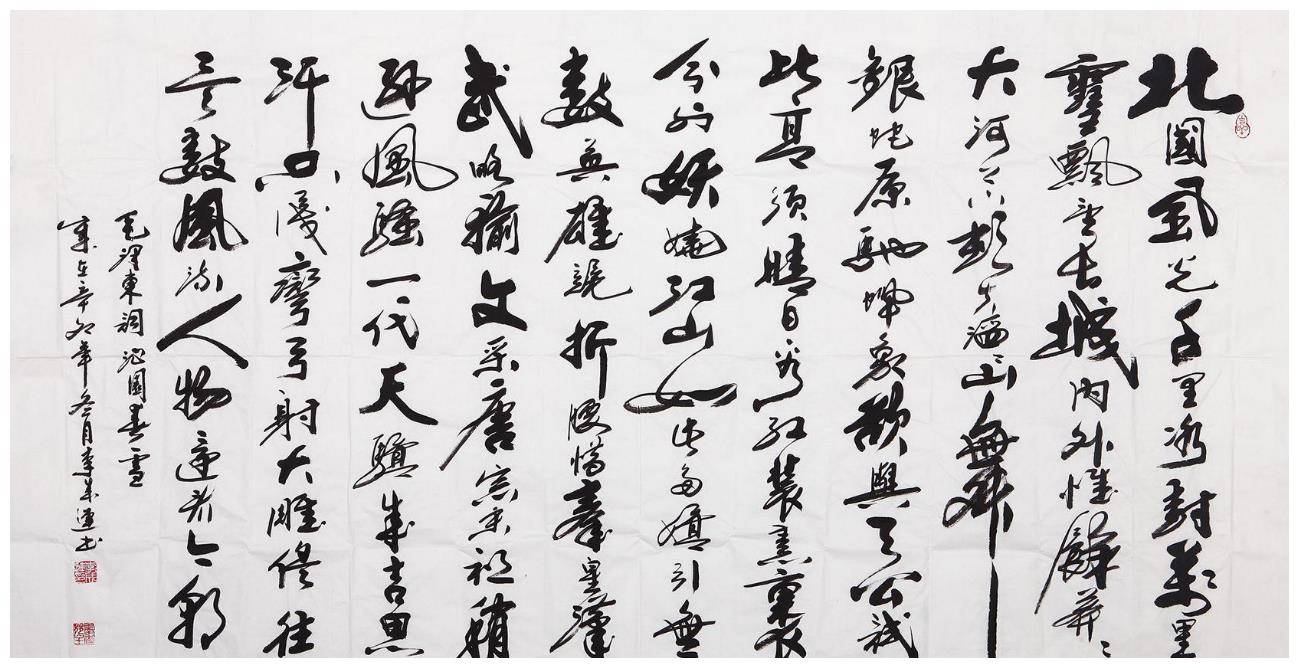 北國風光千里冰封萬里
雪飄望長城內外惟餘莽〻
大河上下頓失滔〻山舞
銀蛇原馳蠟象欲與天公試
比高須晴日看紅裝素裹
分外妖嬈江山如此多嬌引無
數英雄競折腰惜秦皇漢
武略輸文采唐宗宋祖稍
遜風騷一代天驕成吉思
汗只識彎弓射大雕俱往
矣數風流人物還看今朝
毛澤東詞沁園春雪
歲在辛卯年冬月書